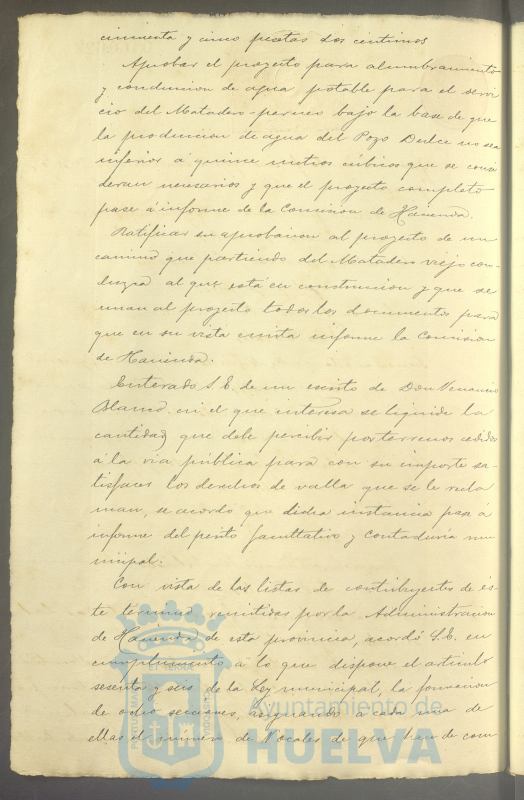 cincuenta y cinco pesetas dos centimos
Aprobar el proyecto para alumbramiento
y conduccion de agua potable para el servi
cio del Matadero bajo la base de que
la produccion de agua del Pozo Dulce no sea
inferior á quince metros cúbicos que se consi
deran necesarios y que el proyecto completo
pase á informe de la Comision de Hacienda.
Ratificar su aprobacion al proyecto de un
camino que partiendo del Matadero viejo con
duzca al que está en construccion y que se
unan al proyecto todos los documentos para
que en su vista emita informe la Comision
de Hacienda.
Enterado S. E. de un escrito de Don Venancio
Blanco en el que interesa se liquide la
cantidad que debe percibir por terrenos cedidos
á la via pública para con su importe sa-
tisfacer los derechos de valla que se le recla
man, se acordó que dicha instancia pase á
informe del perito facultativo y Contaduría mu
nicipal.
Con vista de las listas de contribuyentes de es-
te termino remitidas por la Administracion
de Hacienda de esta provincia, acordó S. E. en
cumplimiento á lo que dispone el articulo
sesenta y seis de la Ley municipal, la formacion
de ocho secciones, asignando á cada una de
ellas el número de Vocales de que han de com
Ayuntamiento de
HUELVA